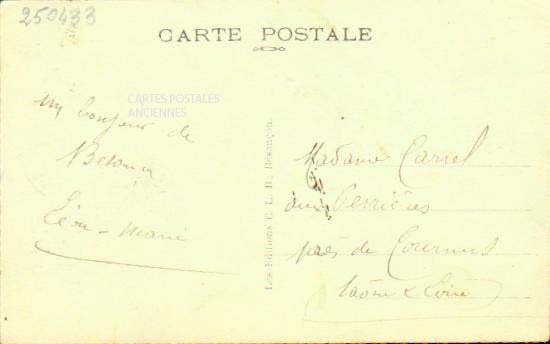 250433
CARTE POSTALE
CARTES POSTALES
ANCIENNES
un bonjour de
Besançon
Léon - Marie
Les Editions C. L. B., Besançon.
Madame Carrel
aux Perrières
près de Tournus
Saône & Loire